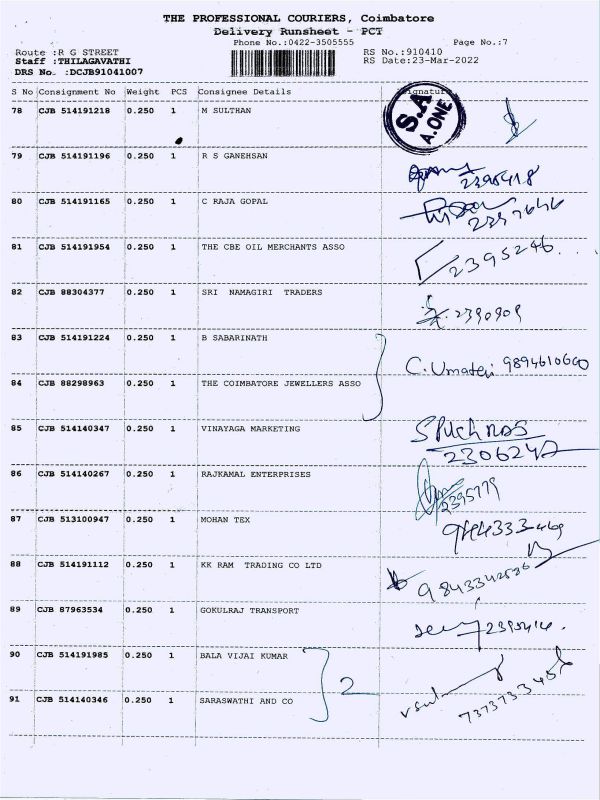 THE PROFESSIONAL COURIERS, Coimbatore
Delivery Runsheet - PCT
Phone No.:0422-3505555
Page No.:7
Route :R G STREET
RS No.:910410
Staff :THILAGAVATHI
RS Date:23-Mar-2022
DRS No. :DCJB91041007
S No Consignment No Weight PCS Consignee Details Signature
78 CJB 514191218 0.250 1 M SULTHAN
S.A
A.ONE
79 CJB 514191196 0.250 1 R S GANEHSAN
2395418
80 CJB 514191165 0.250 1 C RAJA GOPAL
2397646
81 CJB 514191954 0.250 1 THE CBE OIL MERCHANTS ASSO
2395246
82 CJB 88304377 0.250 1 SRI NAMAGIRI TRADERS
2390909
83 CJB 514191224 0.250 1 B SABARINATH
C. Umateri 9894610600
84 CJB 88298963 0.250 1 THE COIMBATORE JEWELLERS ASSO
85 CJB 514140347 0.250 1 VINAYAGA MARKETING
2306242
86 CJB 514140267 0.250 1 RAJKAMAL ENTERPRISES
2395779
87 CJB 513100947 0.250 1 MOHAN TEX
88 CJB 514191112 0.250 1 KK RAM TRADING CO LTD
89 CJB 87963534 0.250 1 GOKULRAJ TRANSPORT
90 CJB 514191985 0.250 1 BALA VIJAI KUMAR
2
91 CJB 514140346 0.250 1 SARASWATHI AND CO